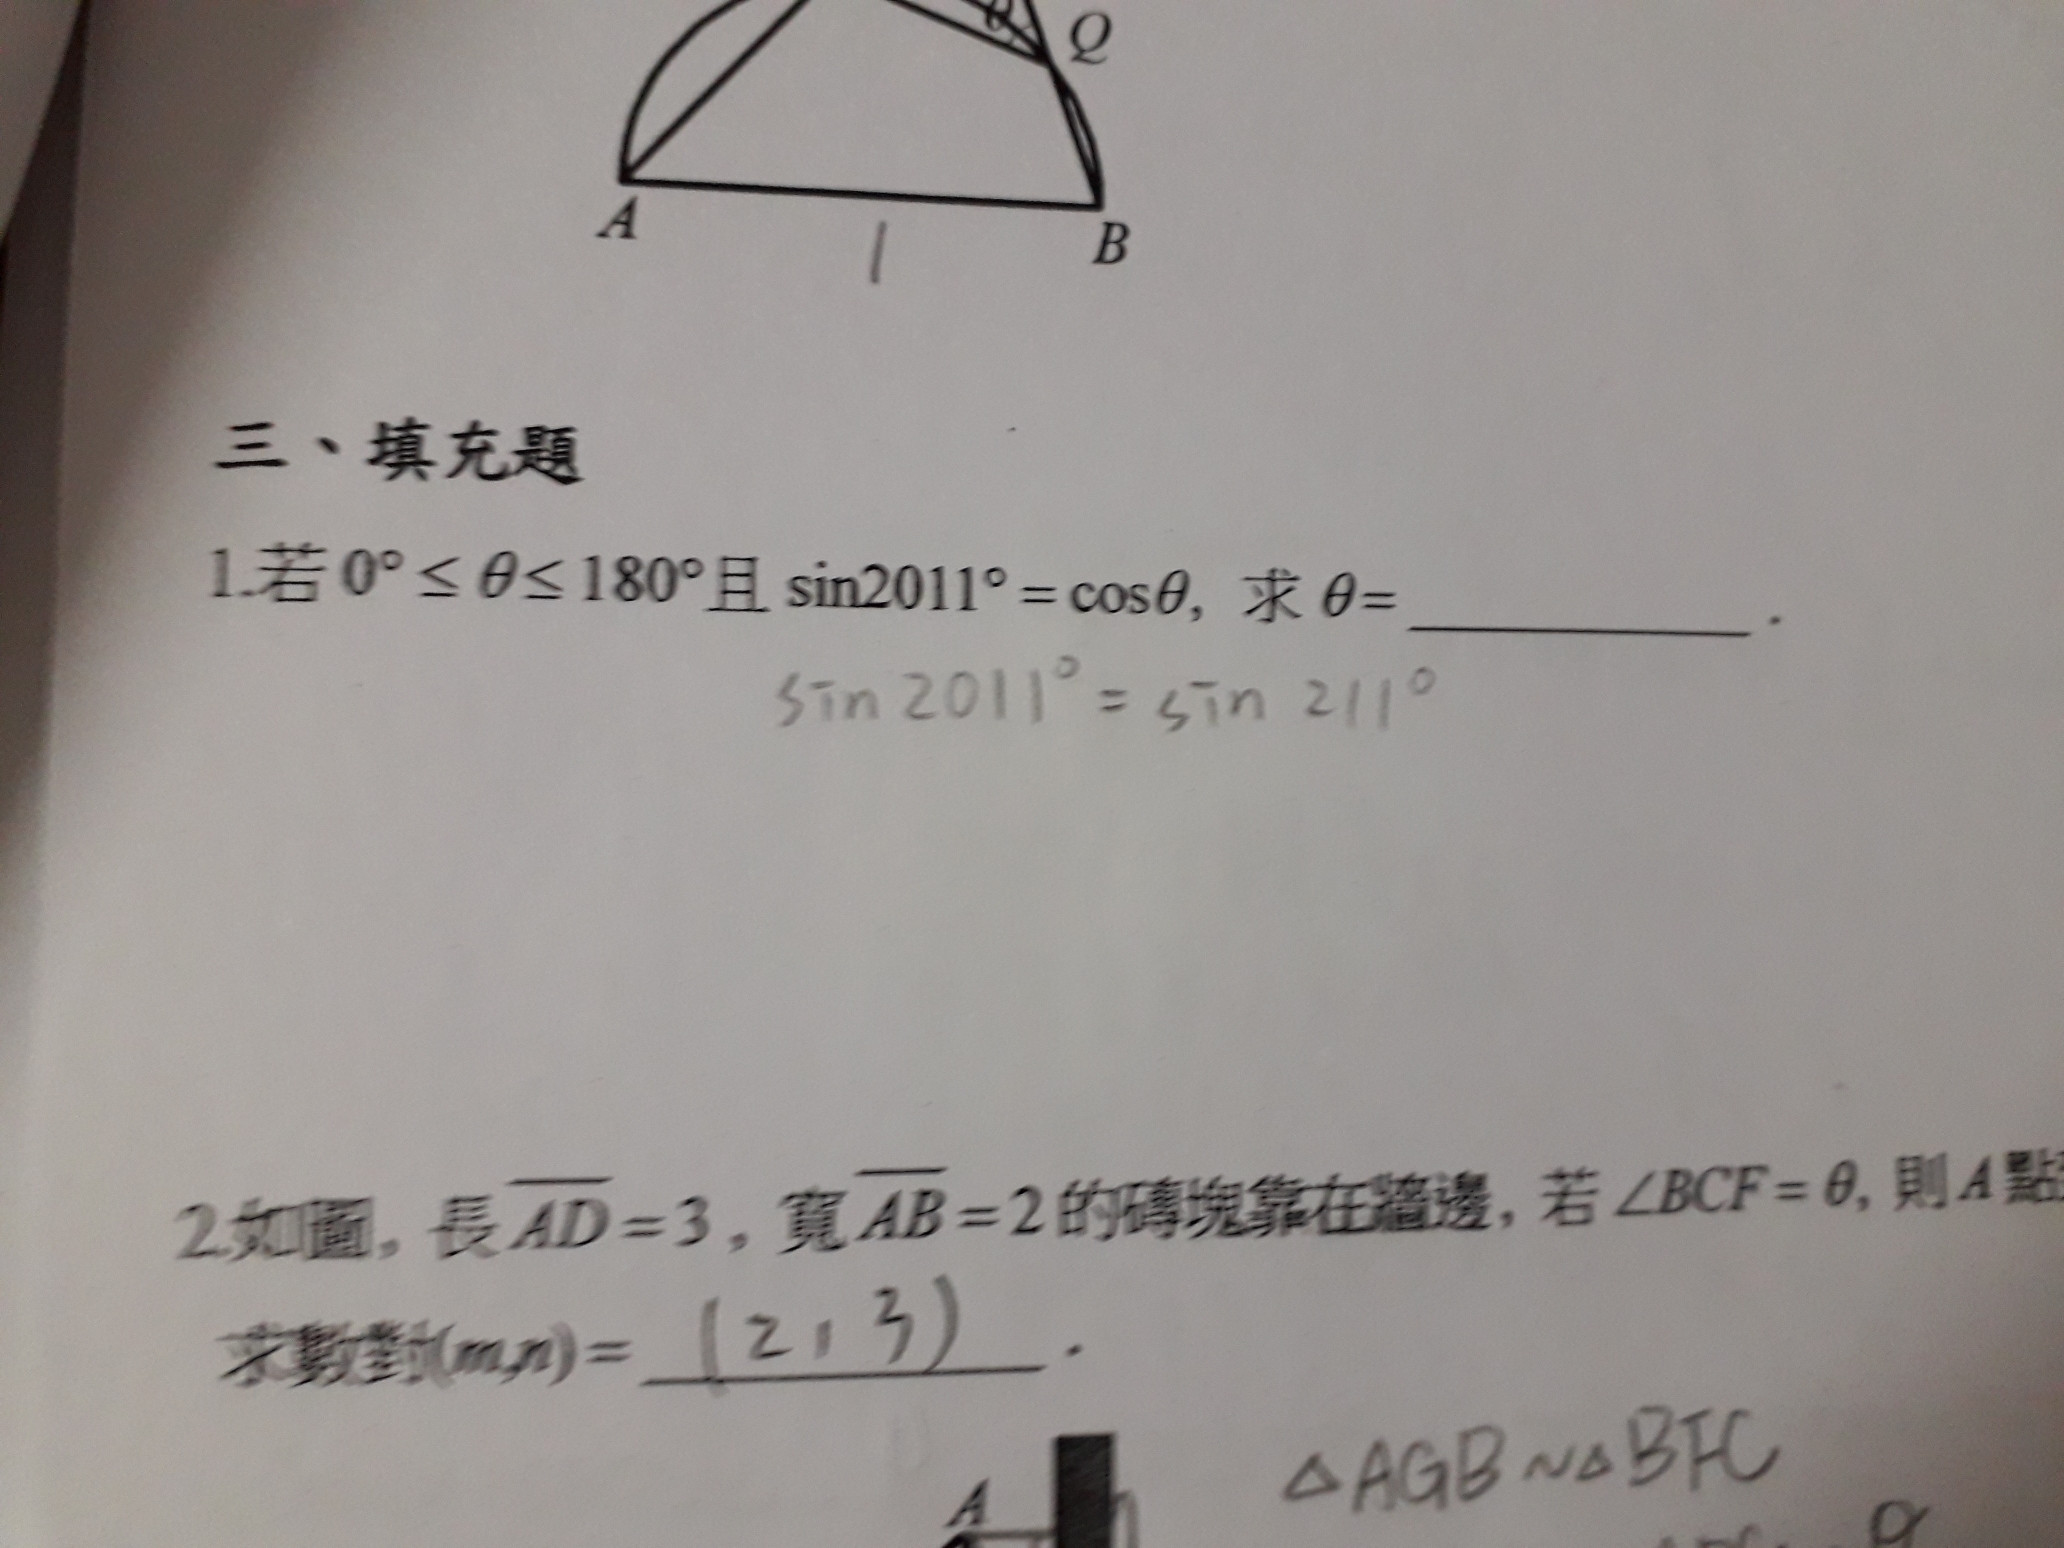 θ Q
A B
1
三、填充題
1.若 0° ≤ θ ≤ 180° 且 sin2011° = cosθ, 求 θ= ________ .
sin 2011° = sin 211°
2.如圖, 長 AD = 3 , 寬 AB = 2 的磚塊靠在牆邊, 若 ∠BCF = θ, 則 A 點
求數對(m,n) = (2, 3) .
△AGB ~ △BFC
A